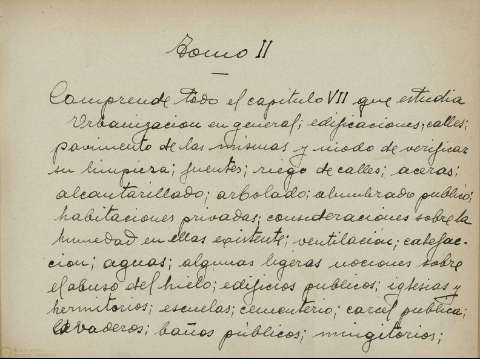 Tomo II
Comprende todo el capitulo VII que estudia
Urbanizacion en general; edificaciones; calles;
pavimento de las mismas y modo de verificar
su limpieza; fuentes; riego de calles; aceras;
alcantarillado; arbolado; alumbrado publico;
habitaciones privadas; consideraciones sobre la
humedad en ellas existente; ventilacion; calefac-
cion; aguas; algunas ligeras nociones sobre
el abuso del hielo; edificios publicos; iglesias y
hermitorios; escuelas; cementerio; carcel publica;
lavaderos; baños públicos; mingitorios;